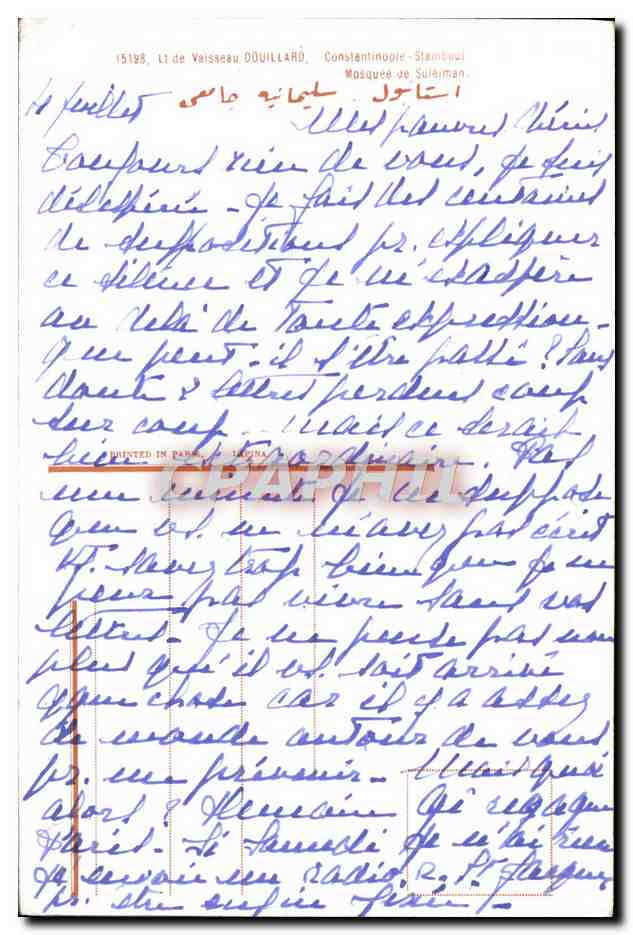 15198, Lt de Vaisseau DOUILLARD, Constantinople-Stamboul
Mosquée de Suleiman.
استانبول . سليمانيه جامعى
4 juillet Mes pauvres chéris
Toujours rien de vous, je suis
désespéré - Je fais des centaines
de suppositions pr. expliquer
ce silence et je m'exaspère
au delà de toute expression -
que peut-il s'être passé ? Sans
doute 2 lettres perdues coup
sur coup - mais ce serait
bien extraordinaire. Pas
PRINTED IN PARIS LAPINA
CPARHIL
une minute je ne suppose
que vs. ne m'avez pas écrit
vs. savez trop bien que je ne
peux pas vivre sans vos
lettres - Je ne pense pas non
plus qu'il vs. soit arrivé
qque chose car il y a assez
de monde autour de vous
pr. me prévenir - Mais quoi
alors ? Demain regagne
Paris - Si Samedi je n'ai rien
j'envoie un radio, R. St Jacques
pr. être enfin fixé ! -